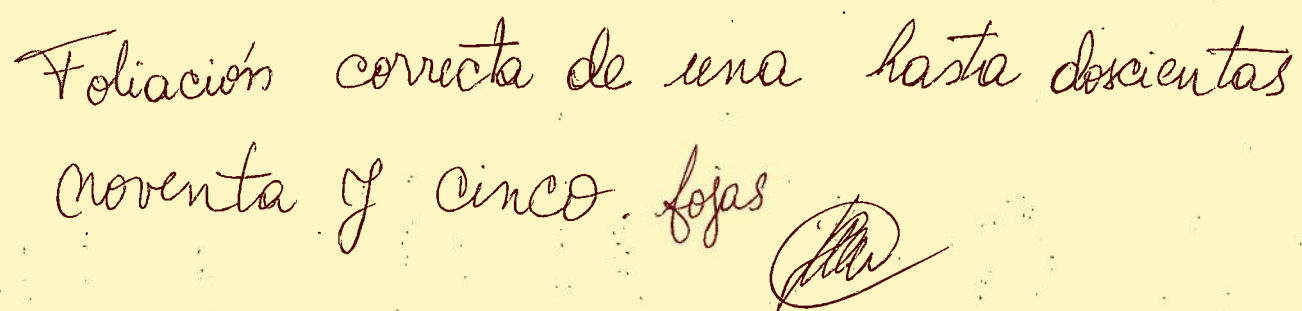 Foliación correcta de una hasta doscientas
noventa y cinco. fojas